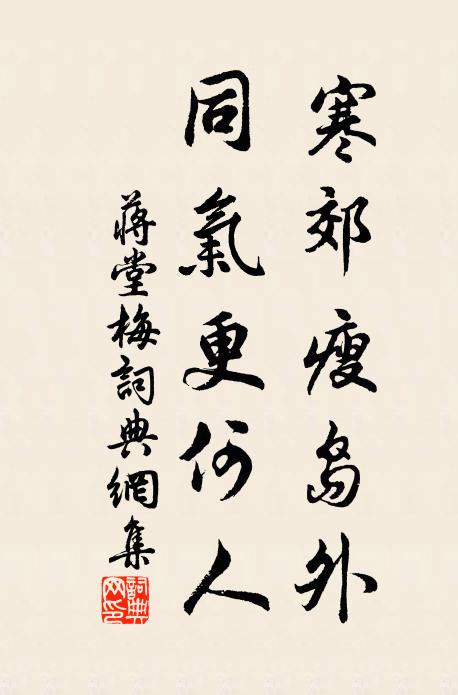 寒郊瘦島外
同氣更何人
蔣堂梅詞典網集
詞典
网印